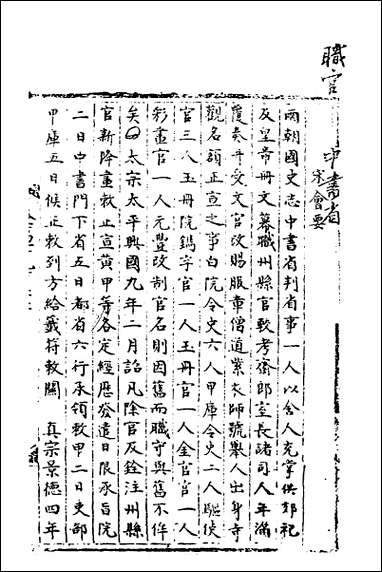 職官
中書省
宋會要
兩朝國史志中書省判省事一人以舍人充掌供郊祀
及皇帝冊文幕職州縣官較考齋郎室長諸司人年滿
覆奏并受文官改賜服章僧道紫衣師號舉人出身寺
觀名額正宣之事白院令史六人甲庫令史二人驅使
官三人玉冊院鐫字官一人玉冊官一人金官官一人
彩畫官一人元豐改制官名則因舊而職守與舊不侔
矣○太宗太平興國九年二月詔凡除官及銓注州縣
官新降畫敕正宣黃甲等各定經歷發遣日限承旨院
二日中書門下省五日都省六行承領敕甲二日吏部
甲庫五日候正敕到方給籤符敕關 真宗景德四年